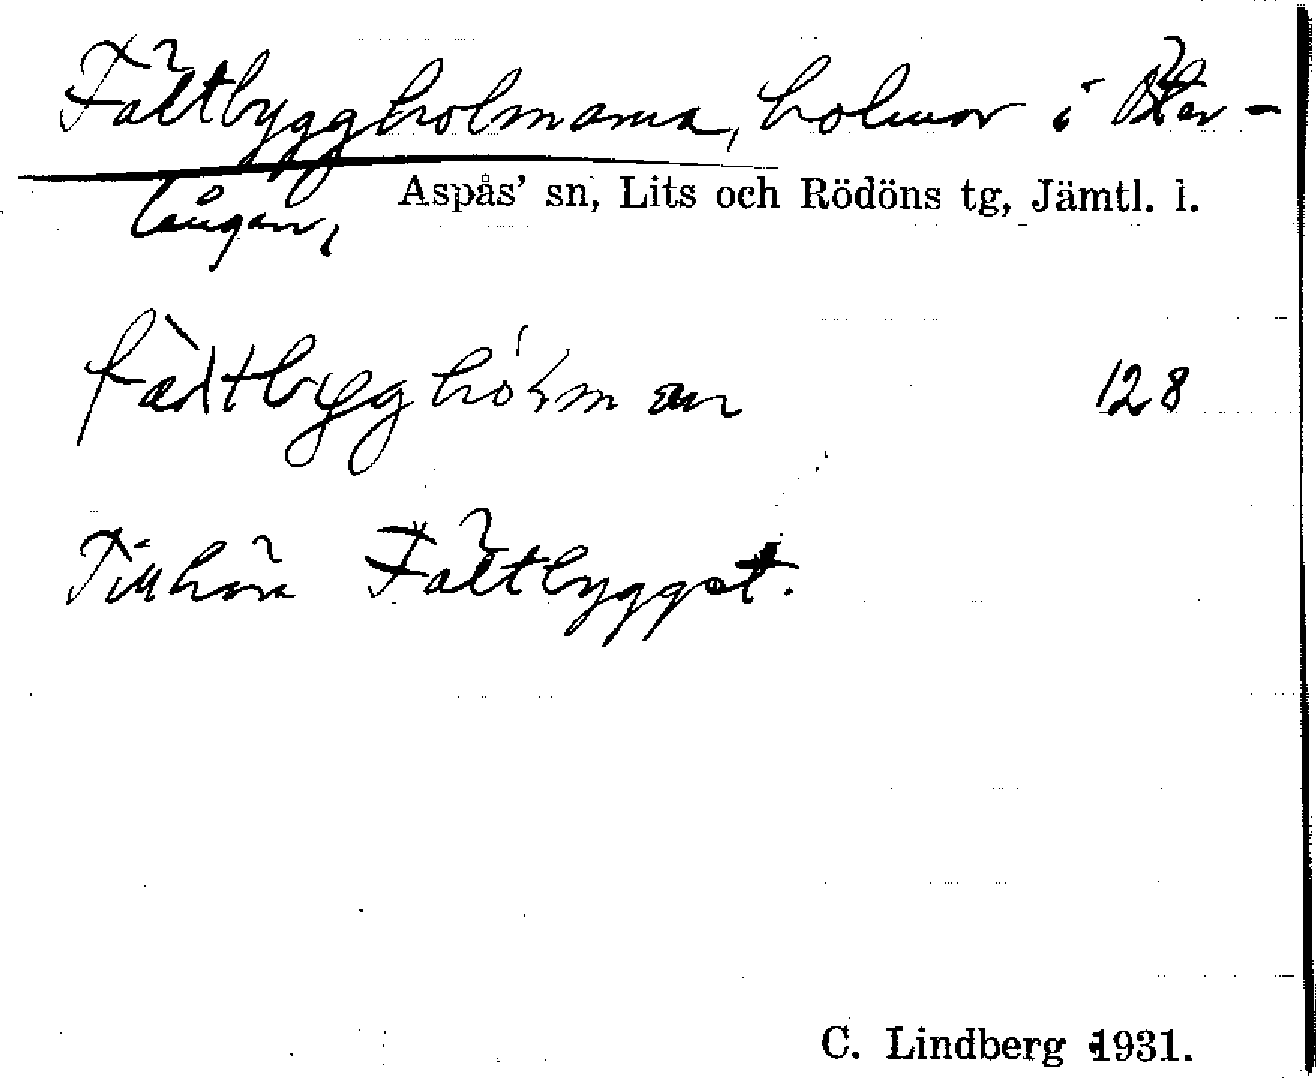 Fältbyggholmarna, holmar i Öster-
Aspås' sn, Lits och Rödöns tg, Jämtl. l.
långan,
128
Tillhör Fältbygget.
C. Lindberg 1931.